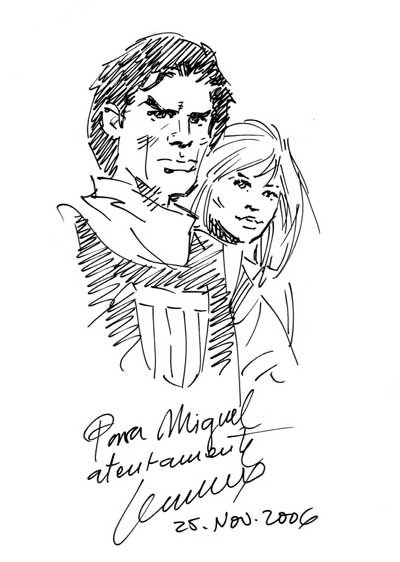 Para Miguel
atentament
25. NOV. 2006